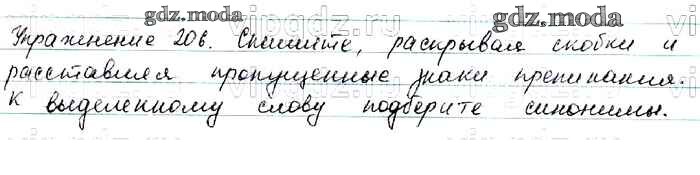 gdz.moda
gdz.moda
Упражнение 206. Спишите, раскрывая скобки и
расставляя пропущенные знаки препинания.
К выделенному слову подберите синонимы.